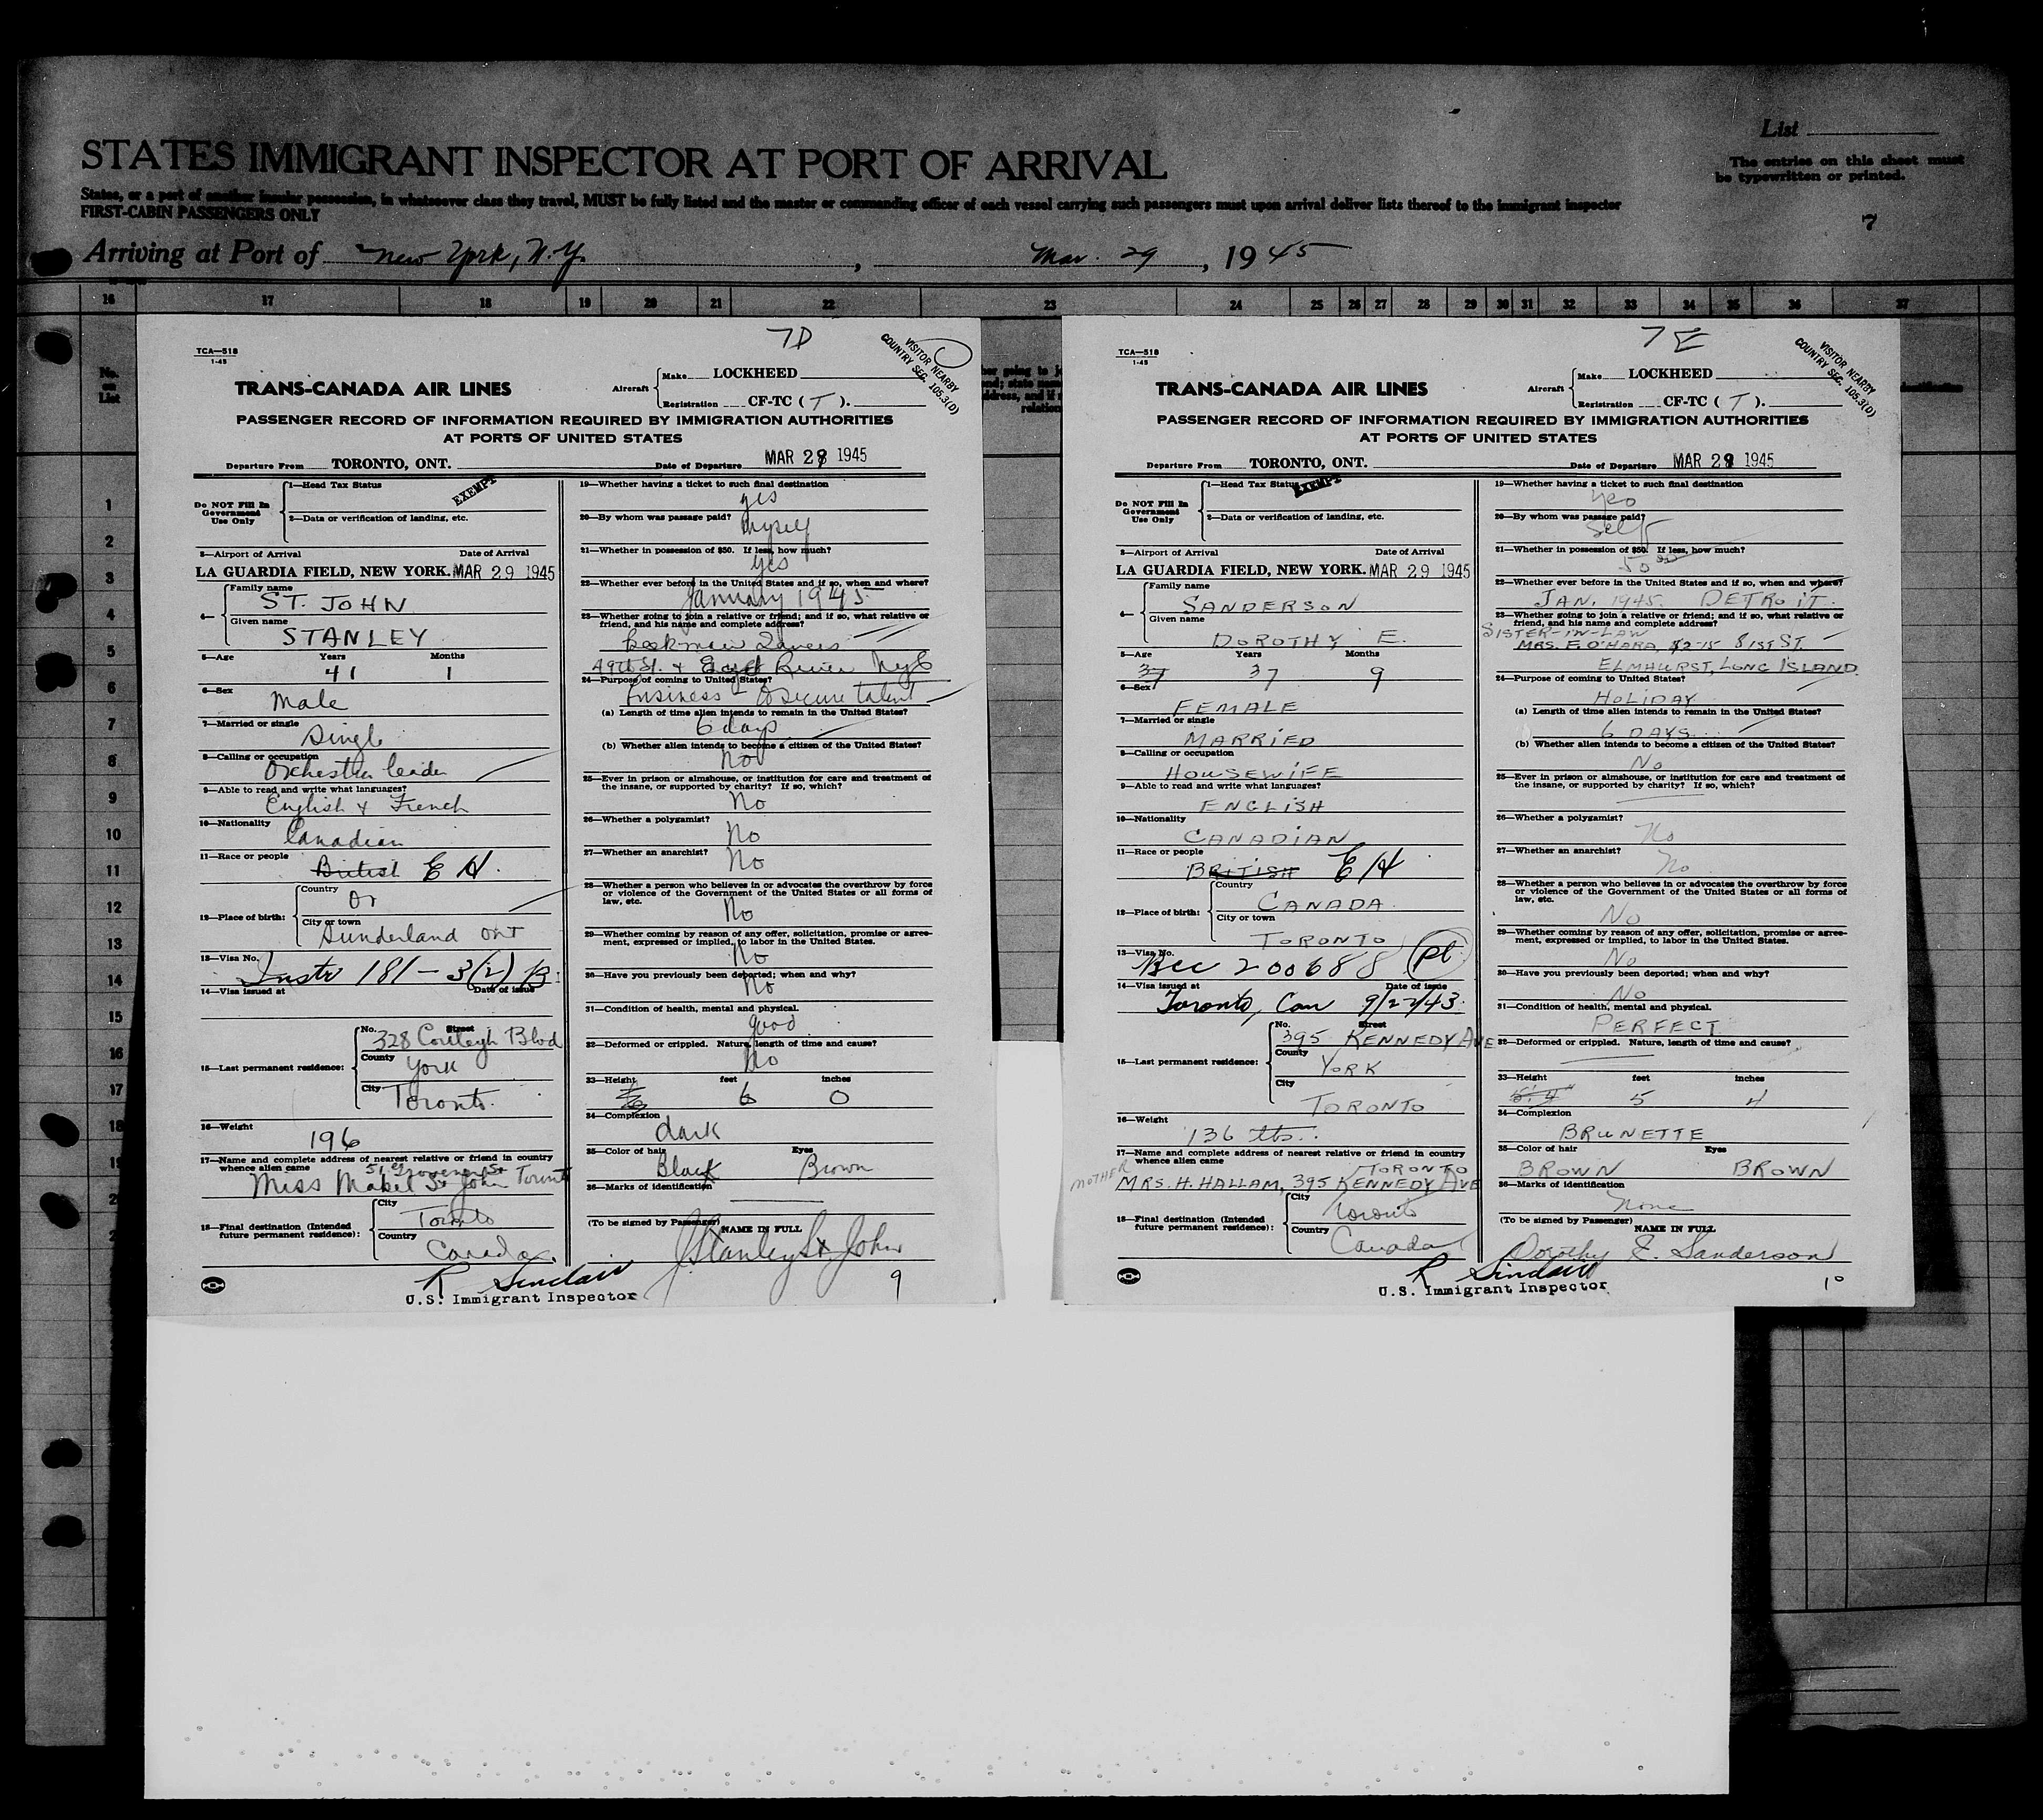 List
STATES IMMIGRANT INSPECTOR AT PORT OF ARRIVAL
The entries on this sheet must
be typewritten or printed.
States, or a port of another insular possession, in whatsoever class they travel, MUST be fully listed and the master or commanding officer of each vessel carrying such passengers must upon arrival deliver lists thereof to the immigrant inspector
FIRST-CABIN PASSENGERS ONLY
7
Arriving at Port of New York, N.Y. , Mar. 29 , 1945
16 17 18 19 20 21 22 23 24 25 26 27 28 29 30 31 32 33 34 35 36 37
No.
on
List
1
2
3
4
5
6
7
8
9
10
11
12
13
14
15
16
17
18
19
7D
VISITOR NEARBY
COUNTRY SEC. 105.3(D)
TCA—518
1-45
TRANS-CANADA AIR LINES
Aircraft Make LOCKHEED
Registration CF-TC ( T ).
PASSENGER RECORD OF INFORMATION REQUIRED BY IMMIGRATION AUTHORITIES
AT PORTS OF UNITED STATES
Departure From TORONTO, ONT. Date of Departure MAR 29 1945
Do NOT Fill In
Government
Use Only
1—Head Tax Status EXEMPT
2—Data or verification of landing, etc.
3—Airport of Arrival Date of Arrival
LA GUARDIA FIELD, NEW YORK. MAR 29 1945
4— Family name
ST. JOHN
Given name
STANLEY
5—Age Years Months
41 1
6—Sex
Male
7—Married or single
Single
8—Calling or occupation
Orchestra leader
9—Able to read and write what languages?
English & French
10—Nationality
Canadian
11—Race or people
British E H.
12—Place of birth: Country
Or
City or town
Sunderland Ont
13—Visa No.
Instr 181-3(2) B
14—Visa issued at Date of issue
15—Last permanent residence: No. Street
328 Coutleigh Blvd
County
York
City
Toronto.
16—Weight
196
17—Name and complete address of nearest relative or friend in country
whence alien came
Miss Mabel St John Toronto
18—Final destination (Intended
future permanent residence):
City
Toronto
Country
Canada.
19—Whether having a ticket to such final destination
yes
20—By whom was passage paid?
Myself
21—Whether in possession of $50. If less, how much?
yes
22—Whether ever before in the United States and if so, when and where?
January 1945
23—Whether going to join a relative or friend; and if so, what relative or
friend, and his name and complete address?
Beekman Towers
49th St. & East River NYC
24—Purpose of coming to United States?
Business - to secure talent
(a) Length of time alien intends to remain in the United States?
6 days
(b) Whether alien intends to become a citizen of the United States?
No
25—Ever in prison or almshouse, or institution for care and treatment of
the insane, or supported by charity? If so, which?
No
26—Whether a polygamist?
No
27—Whether an anarchist?
No
28—Whether a person who believes in or advocates the overthrow by force
or violence of the Government of the United States or all forms of
law, etc.
No
29—Whether coming by reason of any offer, solicitation, promise or agree-
ment, expressed or implied, to labor in the United States.
No
30—Have you previously been deported; when and why?
No
31—Condition of health, mental and physical.
good
32—Deformed or crippled. Nature, length of time and cause?
No
33—Height feet inches
6 0
34—Complexion
dark
35—Color of hair Eyes
Black Brown
36—Marks of identification
(To be signed by Passenger) NAME IN FULL
J Stanley St John
R Sinclair
U.S. Immigrant Inspector
9
7E
VISITOR NEARBY
COUNTRY SEC. 105.3(D)
TCA—518
1-45
TRANS-CANADA AIR LINES
Aircraft Make LOCKHEED
Registration CF-TC ( T ).
PASSENGER RECORD OF INFORMATION REQUIRED BY IMMIGRATION AUTHORITIES
AT PORTS OF UNITED STATES
Departure From TORONTO, ONT. Date of Departure MAR 29 1945
Do NOT Fill In
Government
Use Only
1—Head Tax Status EXEMPT
2—Data or verification of landing, etc.
3—Airport of Arrival Date of Arrival
LA GUARDIA FIELD, NEW YORK. MAR 29 1945
4— Family name
SANDERSON
Given name
DOROTHY E.
5—Age Years Months
37 37 9
6—Sex
FEMALE
7—Married or single
MARRIED
8—Calling or occupation
HOUSEWIFE
9—Able to read and write what languages?
ENGLISH
10—Nationality
CANADIAN
11—Race or people
BRITISH E H
12—Place of birth: Country
CANADA.
City or town
TORONTO
13—Visa No.
Bcc 200688 Pl.
14—Visa issued at Date of issue
Toronto, Can 9/22/43.
15—Last permanent residence: No. Street
395 KENNEDY AVE
County
YORK
City
TORONTO
16—Weight
136 lbs.
17—Name and complete address of nearest relative or friend in country
whence alien came
TORONTO
MOTHER MRS. H. HALLAM, 395 KENNEDY AVE
18—Final destination (Intended
future permanent residence):
City
Toronto
Country
Canada
19—Whether having a ticket to such final destination
Yes
20—By whom was passage paid?
Self
21—Whether in possession of $50. If less, how much?
50 00
22—Whether ever before in the United States and if so, when and where?
JAN. 1945. DETROIT.
23—Whether going to join a relative or friend; and if so, what relative or
friend, and his name and complete address?
SISTER-IN-LAW
MRS. E. O'HARA, 42-15 81ST ST.
ELMHURST, LONG ISLAND.
24—Purpose of coming to United States?
HOLIDAY
(a) Length of time alien intends to remain in the United States?
6 DAYS.
(b) Whether alien intends to become a citizen of the United States?
No
25—Ever in prison or almshouse, or institution for care and treatment of
the insane, or supported by charity? If so, which?
26—Whether a polygamist?
No
27—Whether an anarchist?
No
28—Whether a person who believes in or advocates the overthrow by force
or violence of the Government of the United States or all forms of
law, etc.
No
29—Whether coming by reason of any offer, solicitation, promise or agree-
ment, expressed or implied, to labor in the United States.
No
30—Have you previously been deported; when and why?
No
31—Condition of health, mental and physical.
PERFECT
32—Deformed or crippled. Nature, length of time and cause?
33—Height feet inches
5'4" 5 4
34—Complexion
BRUNETTE
35—Color of hair Eyes
BROWN BROWN
36—Marks of identification
None
(To be signed by Passenger) NAME IN FULL
Dorothy E. Sanderson
R Sinclair
U.S. Immigrant Inspector
10